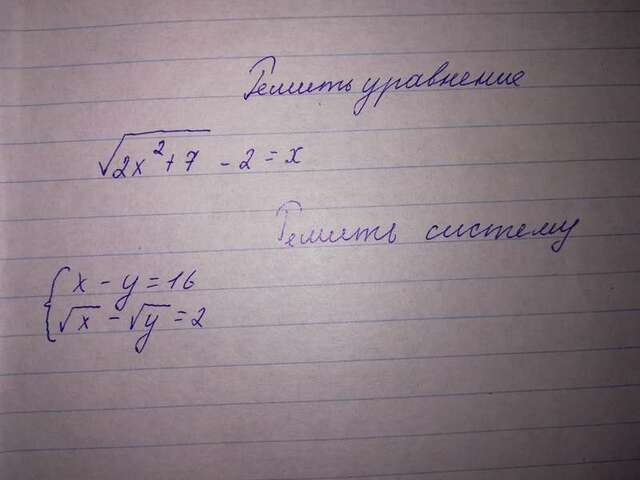 Решить уравнение
√(2x²+7) - 2 = x
Решить систему
{ x - y = 16
√x - √y = 2